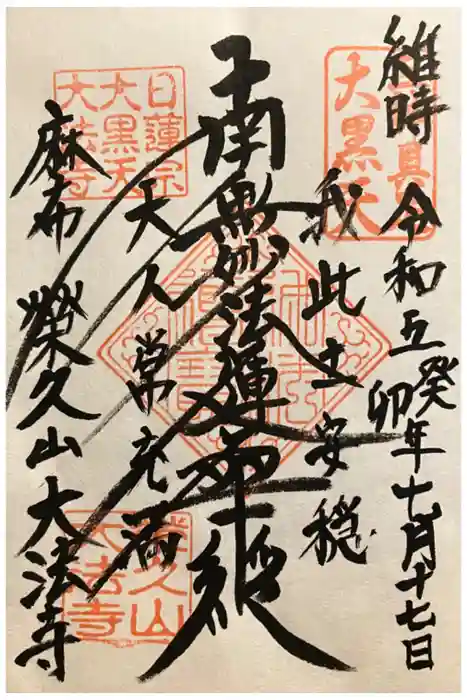 維時 令和五癸卯年 七月十七日
我此土安穏
南無妙法蓮華経
天人常充満
麻布 榮久山 大法寺
大黒天
日蓮宗
大黒天
大法寺
榮久山
大法寺